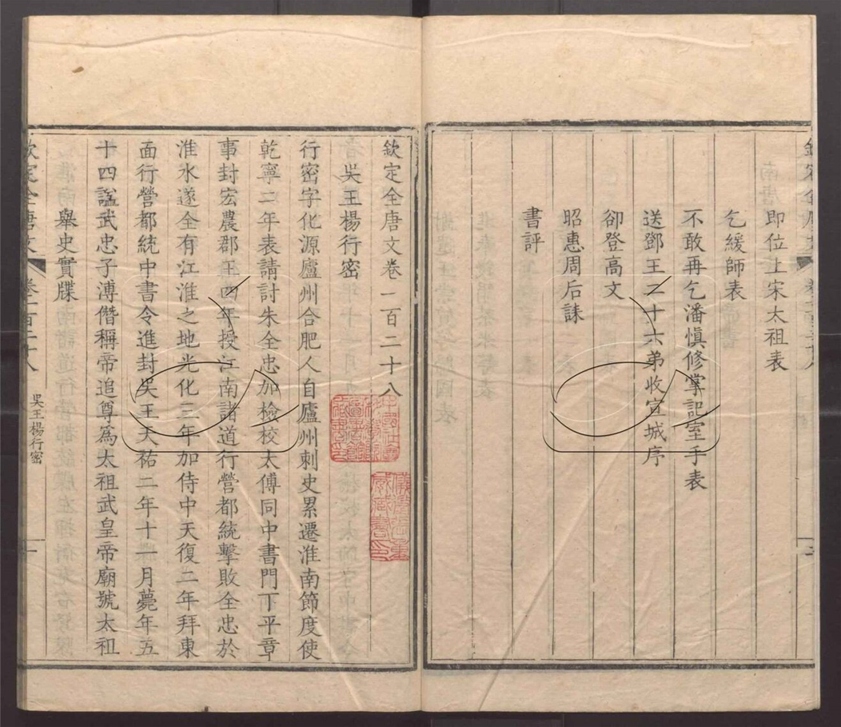 即位上宋太祖表
乞緩師表
不敢再乞潘慎修掌記室手表
送鄧王二十六弟收宣城序
卻登高文
昭惠周后誄
書評
欽定全唐文卷一百二十八
吳王楊行密
行密字化源廬州合肥人自廬州刺史累遷淮南節度使
乾寧二年表請討朱全忠加檢校太傅同中書門下平章
事封宏農郡王四年授江南諸道行營都統擊敗全忠於
淮水遂全有江淮之地光化三年加侍中天復二年拜東
面行營都統中書令進封吳王天祐二年十一月薨年五
十四諡武忠子溥僭稱帝追尊為太祖武皇帝廟號太祖
舉史實牒
欽定全唐文
卷一百二十八
吳王楊行密
一